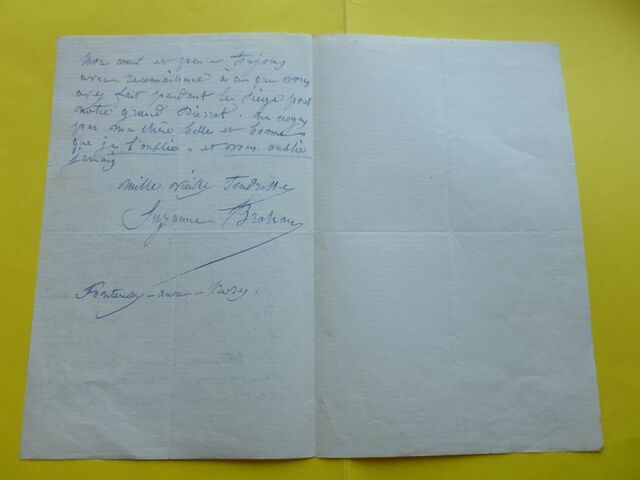 Mon cœur et pense toujours
avec reconnaissance à ce que vous
avez fait pendant le siège pour
notre grand Pierrot. Ne croyez
pas ma chère belle et bonne
que je l'oublie, et vous oublie
jamais
mille vieille tendresse
Suzanne Brohan
Fontenay-aux-Roses.